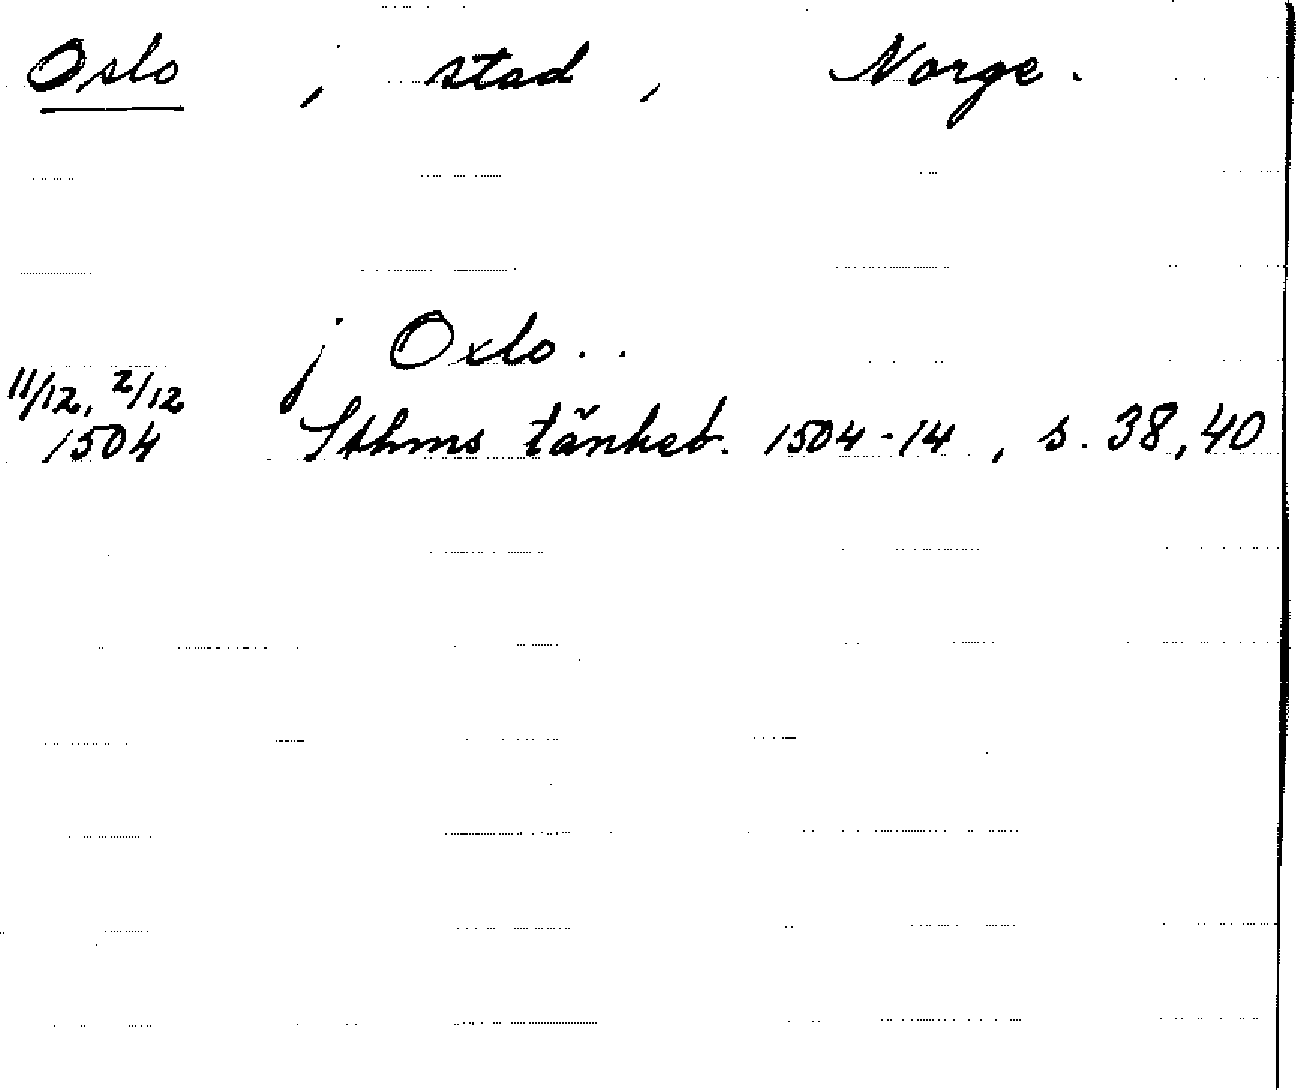 Oslo, stad, Norge.
j Oxlo..
11/12, 2/12
1504 Sthms tänkeb. 1504-14, s. 38,40